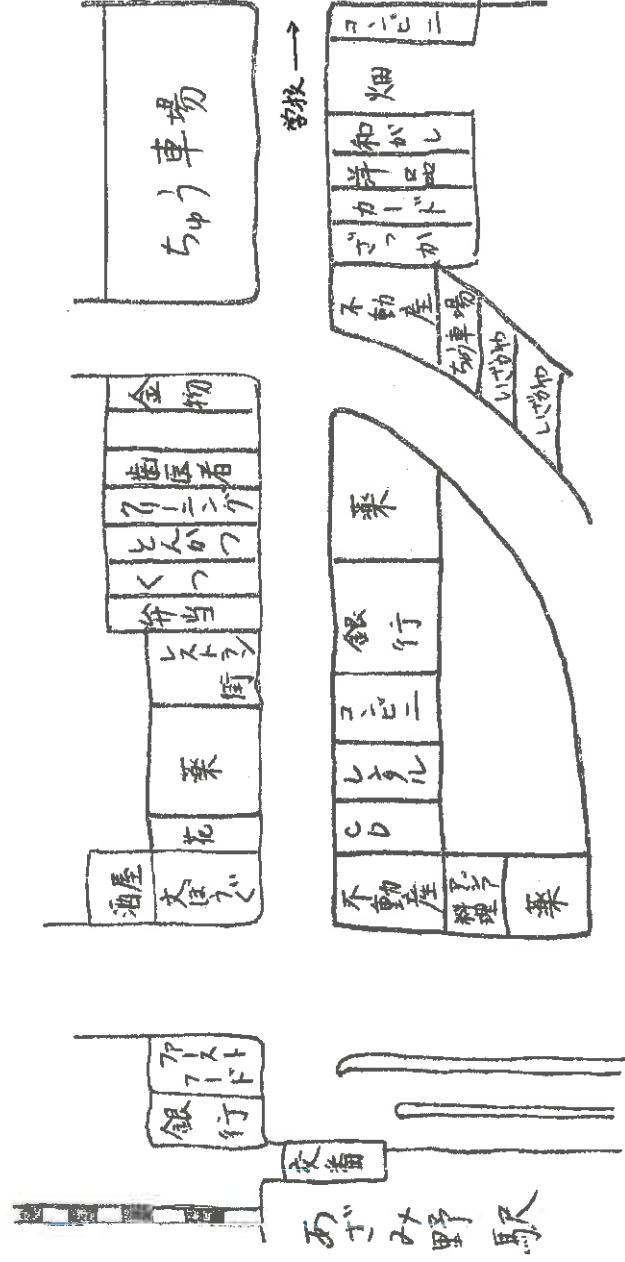 ちゅう車場
学校→
コンビニ
畑
和がし
洋品
カード
ざっか
不動産
ちゅう車場
いざかや
いざかや
金物
歯医者
クリーニング
とんかつ
くつ
弁当
レストラン街
薬
花
酒屋
文ぼうぐ
薬
銀行
コンビニ
レンタル
CD
不動産
アジア料理
薬
ファーストフード
銀行
交番
あざみ野駅